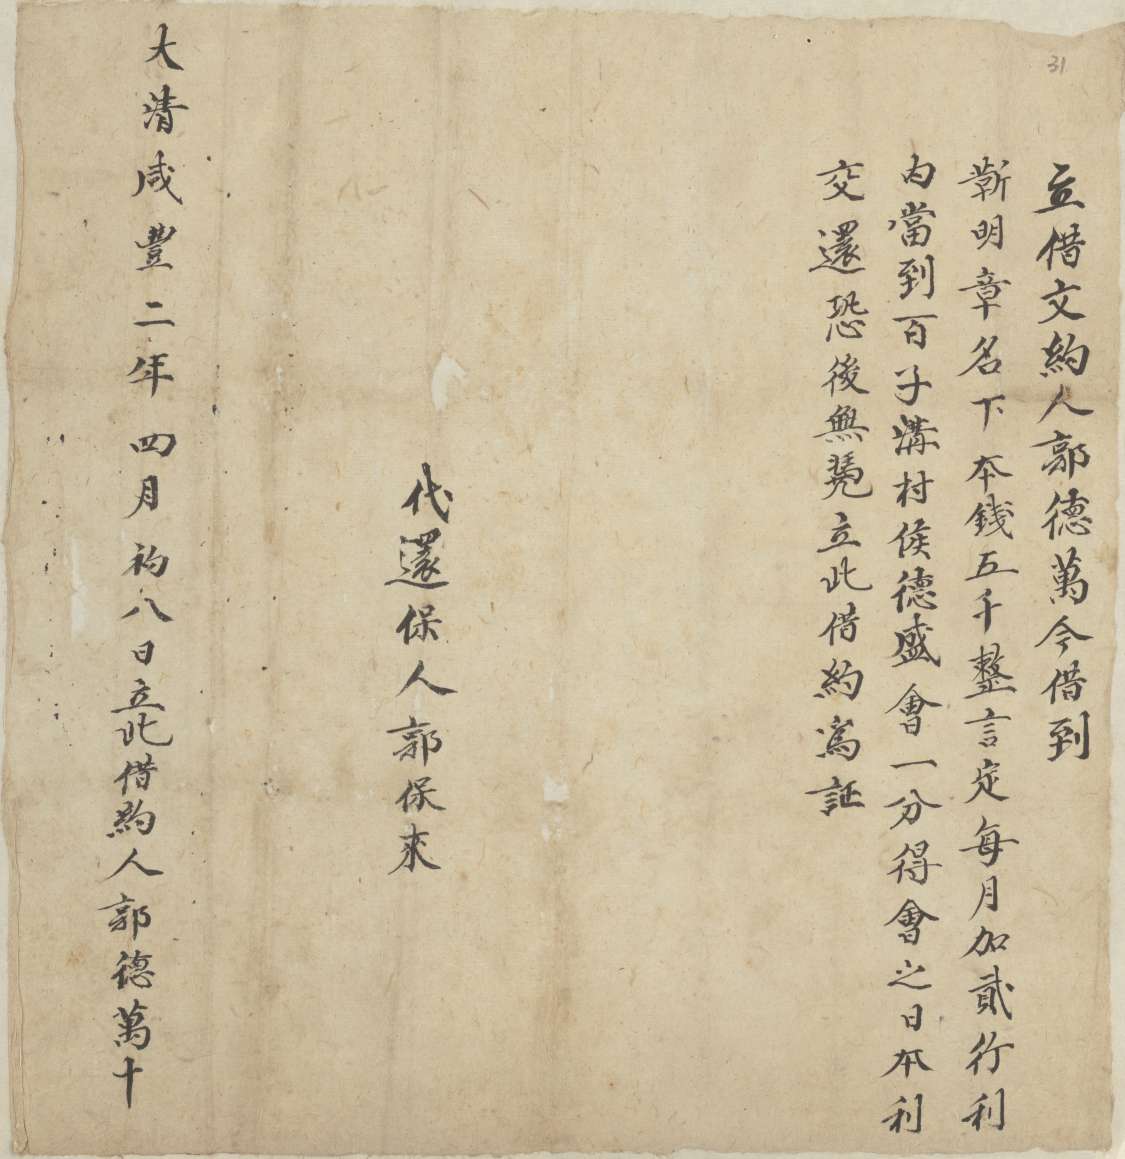 31
立借文約人郭德萬今借到
靳明章名下本錢五千整言定每月加貳行利
內當到百子溝村侯德盛會一分得會之日本利
交還恐後無凴立此借約為証
代還保人郭保來
大清咸豐二年四月初八日立此借約人郭德萬十